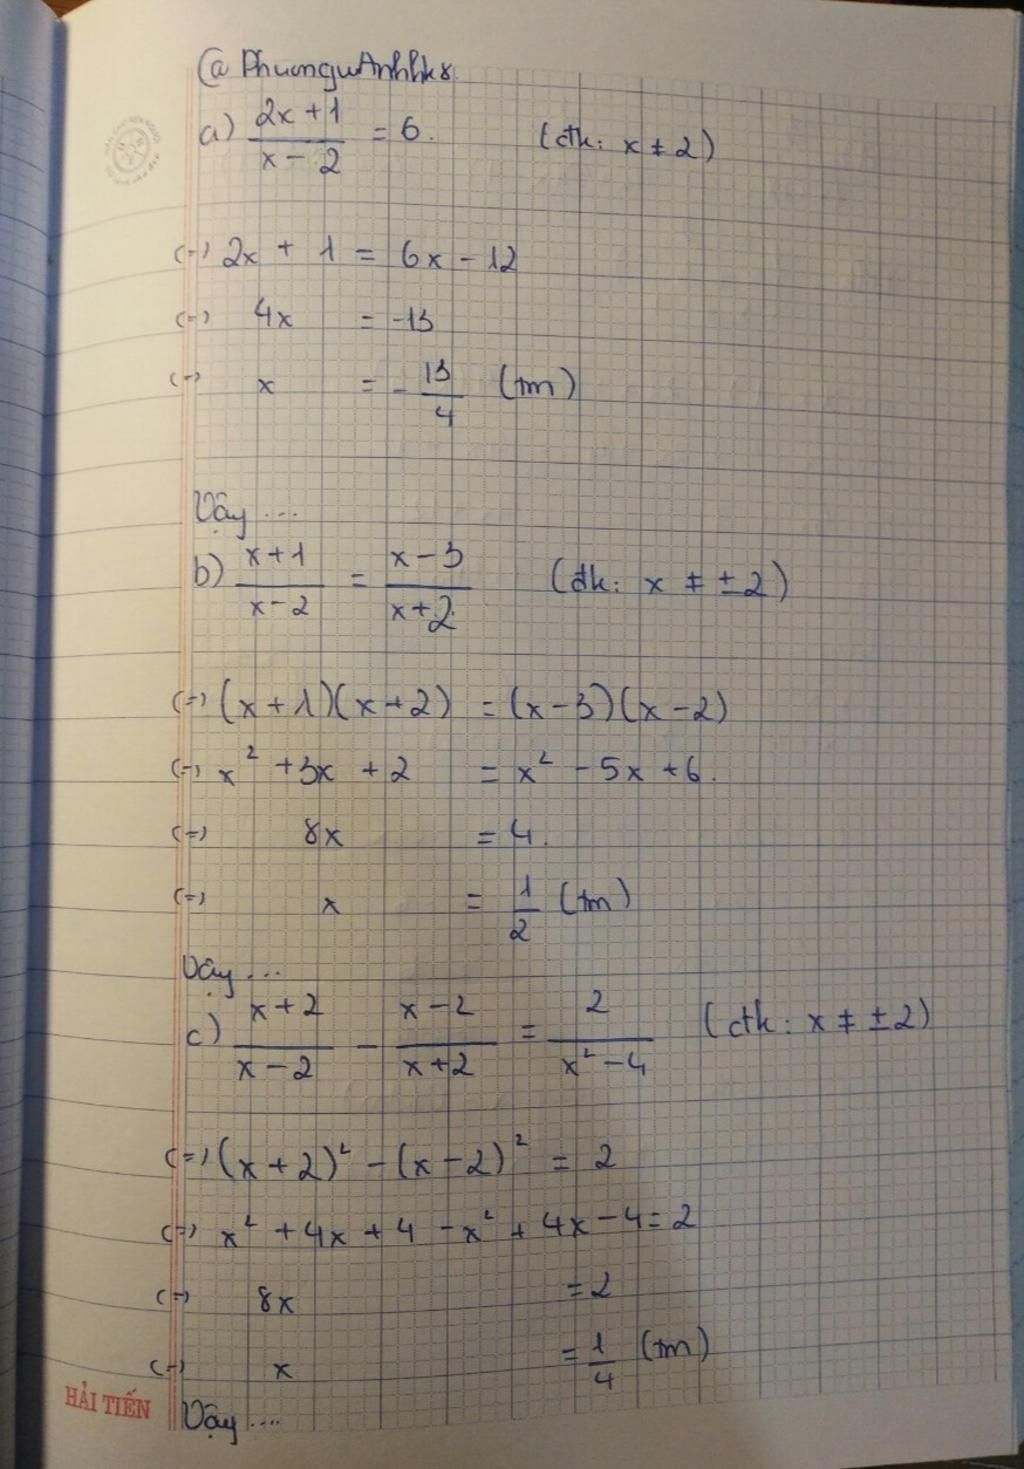 @ PhuongwAnhhk8
a) \frac{2x+1}{x-2} = 6. (đk: x ≠ 2)
(=) 2x + 1 = 6x - 12
(=) 4x = -13
(=) x = -\frac{13}{4} (tm)
Vậy ...
b) \frac{x+1}{x-2} = \frac{x-3}{x+2} (đk: x ≠ ±2)
(=) (x+1)(x+2) = (x-3)(x-2)
(=) x² + 3x + 2 = x² - 5x + 6.
(=) 8x = 4.
(=) x = \frac{1}{2} (tm)
Vậy ...
c) \frac{x+2}{x-2} - \frac{x-2}{x+2} = \frac{2}{x²-4} (đk: x ≠ ±2)
(=) (x+2)² - (x-2)² = 2
(=) x² + 4x + 4 - x² + 4x - 4 = 2
(=) 8x = 2
(=) x = \frac{1}{4} (tm)
HẢI TIẾN
Vậy ....